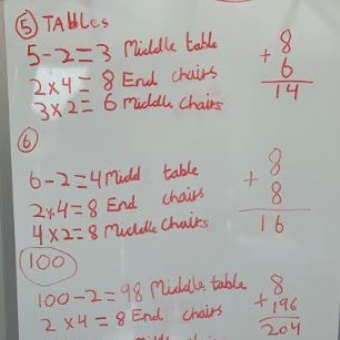 ⑤ TABLes
5-2=3 Middle table
2x4= 8 End chairs
3x2= 6 Middle Chairs
8
+ 6
14
⑥
6-2=4 Midd table
2x4=8 End chairs
4x2=8 Middle Chairs
8
+ 8
16
100
100-2=98 Middle table
2x4=8 End chairs
8
+196
204